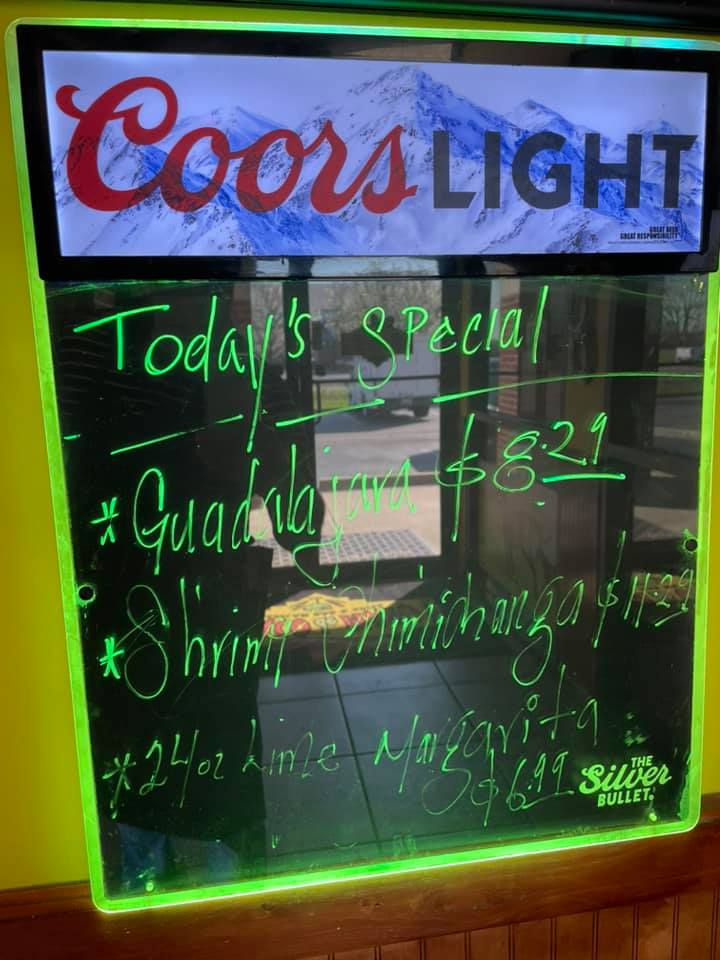 Coors LIGHT
GREAT BEER
GREAT RESPONSIBILITY
Today's Special
* Guadalajara $8.29
* Shrimp Chimichanga $11.29
* 24oz Lime Margarita
$6.99
THE
Silver
BULLET.